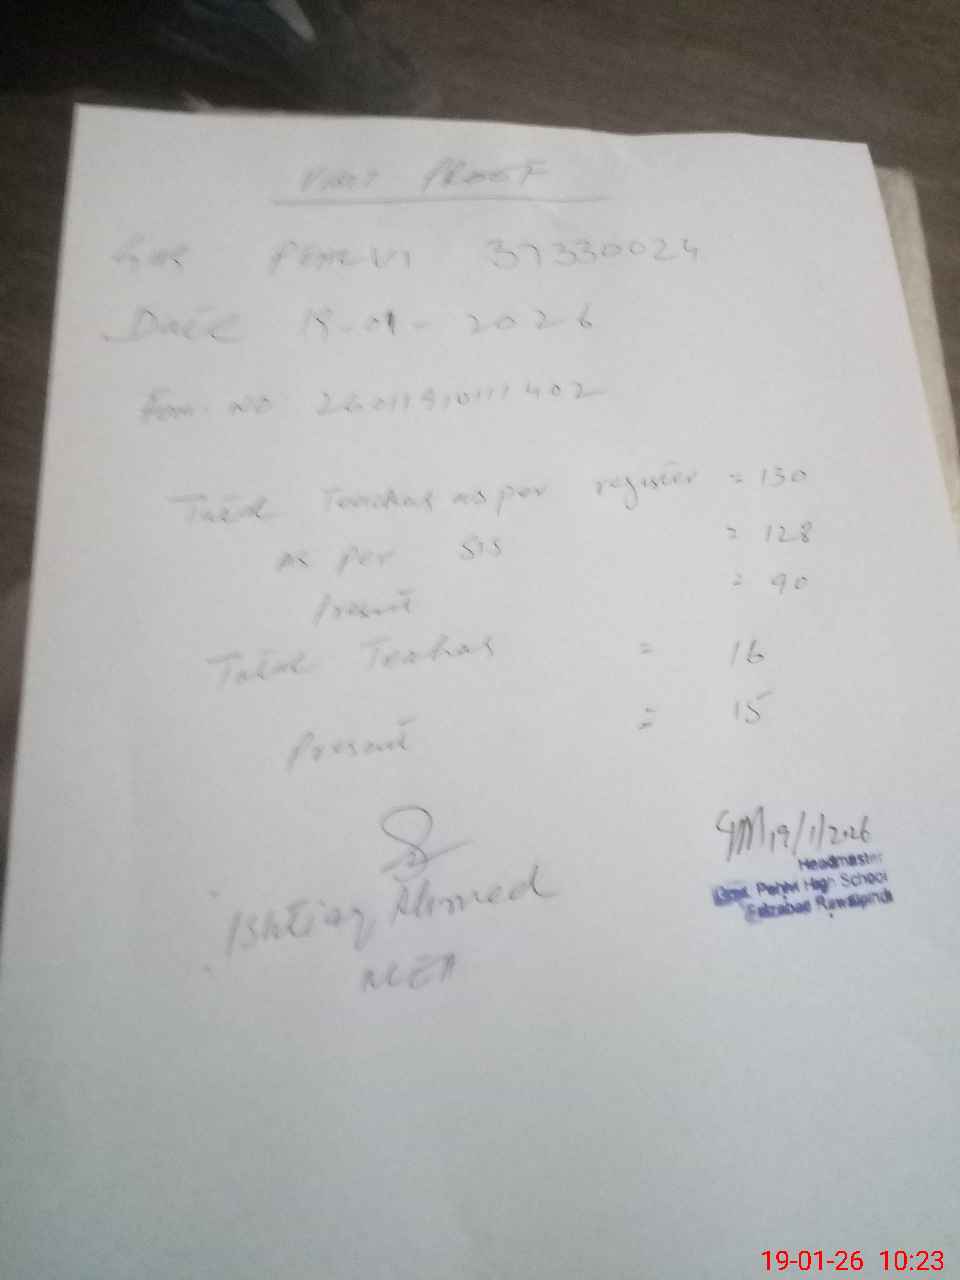 VISIT PROOF
GHS PEHLVI 37330024
Date 19-01-2026
Form No
Total Teachas as per register = 130
as per SIS = 128
Present = 90
Total Teachas = 16
Present = 15
19/1/2026
Ishtiaq Ahmed
MEA
Headmaster
Govt. Pehlvi High School
Faizabad Rawalpindi
19-01-26 10:23